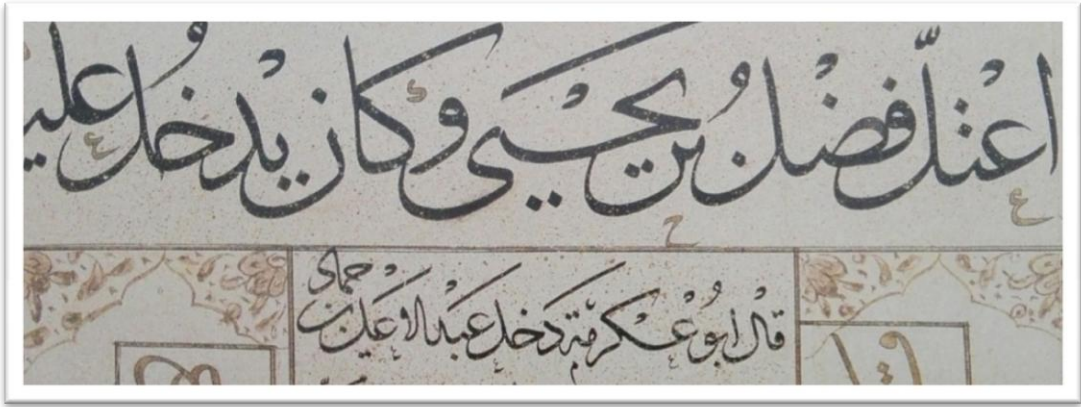 اعْتلّ فضْل بنُ يحْيى وكان يدْخُل علي
قالْ ابُو عْكرمّة دَخل عبْد الاعلى بن حماد